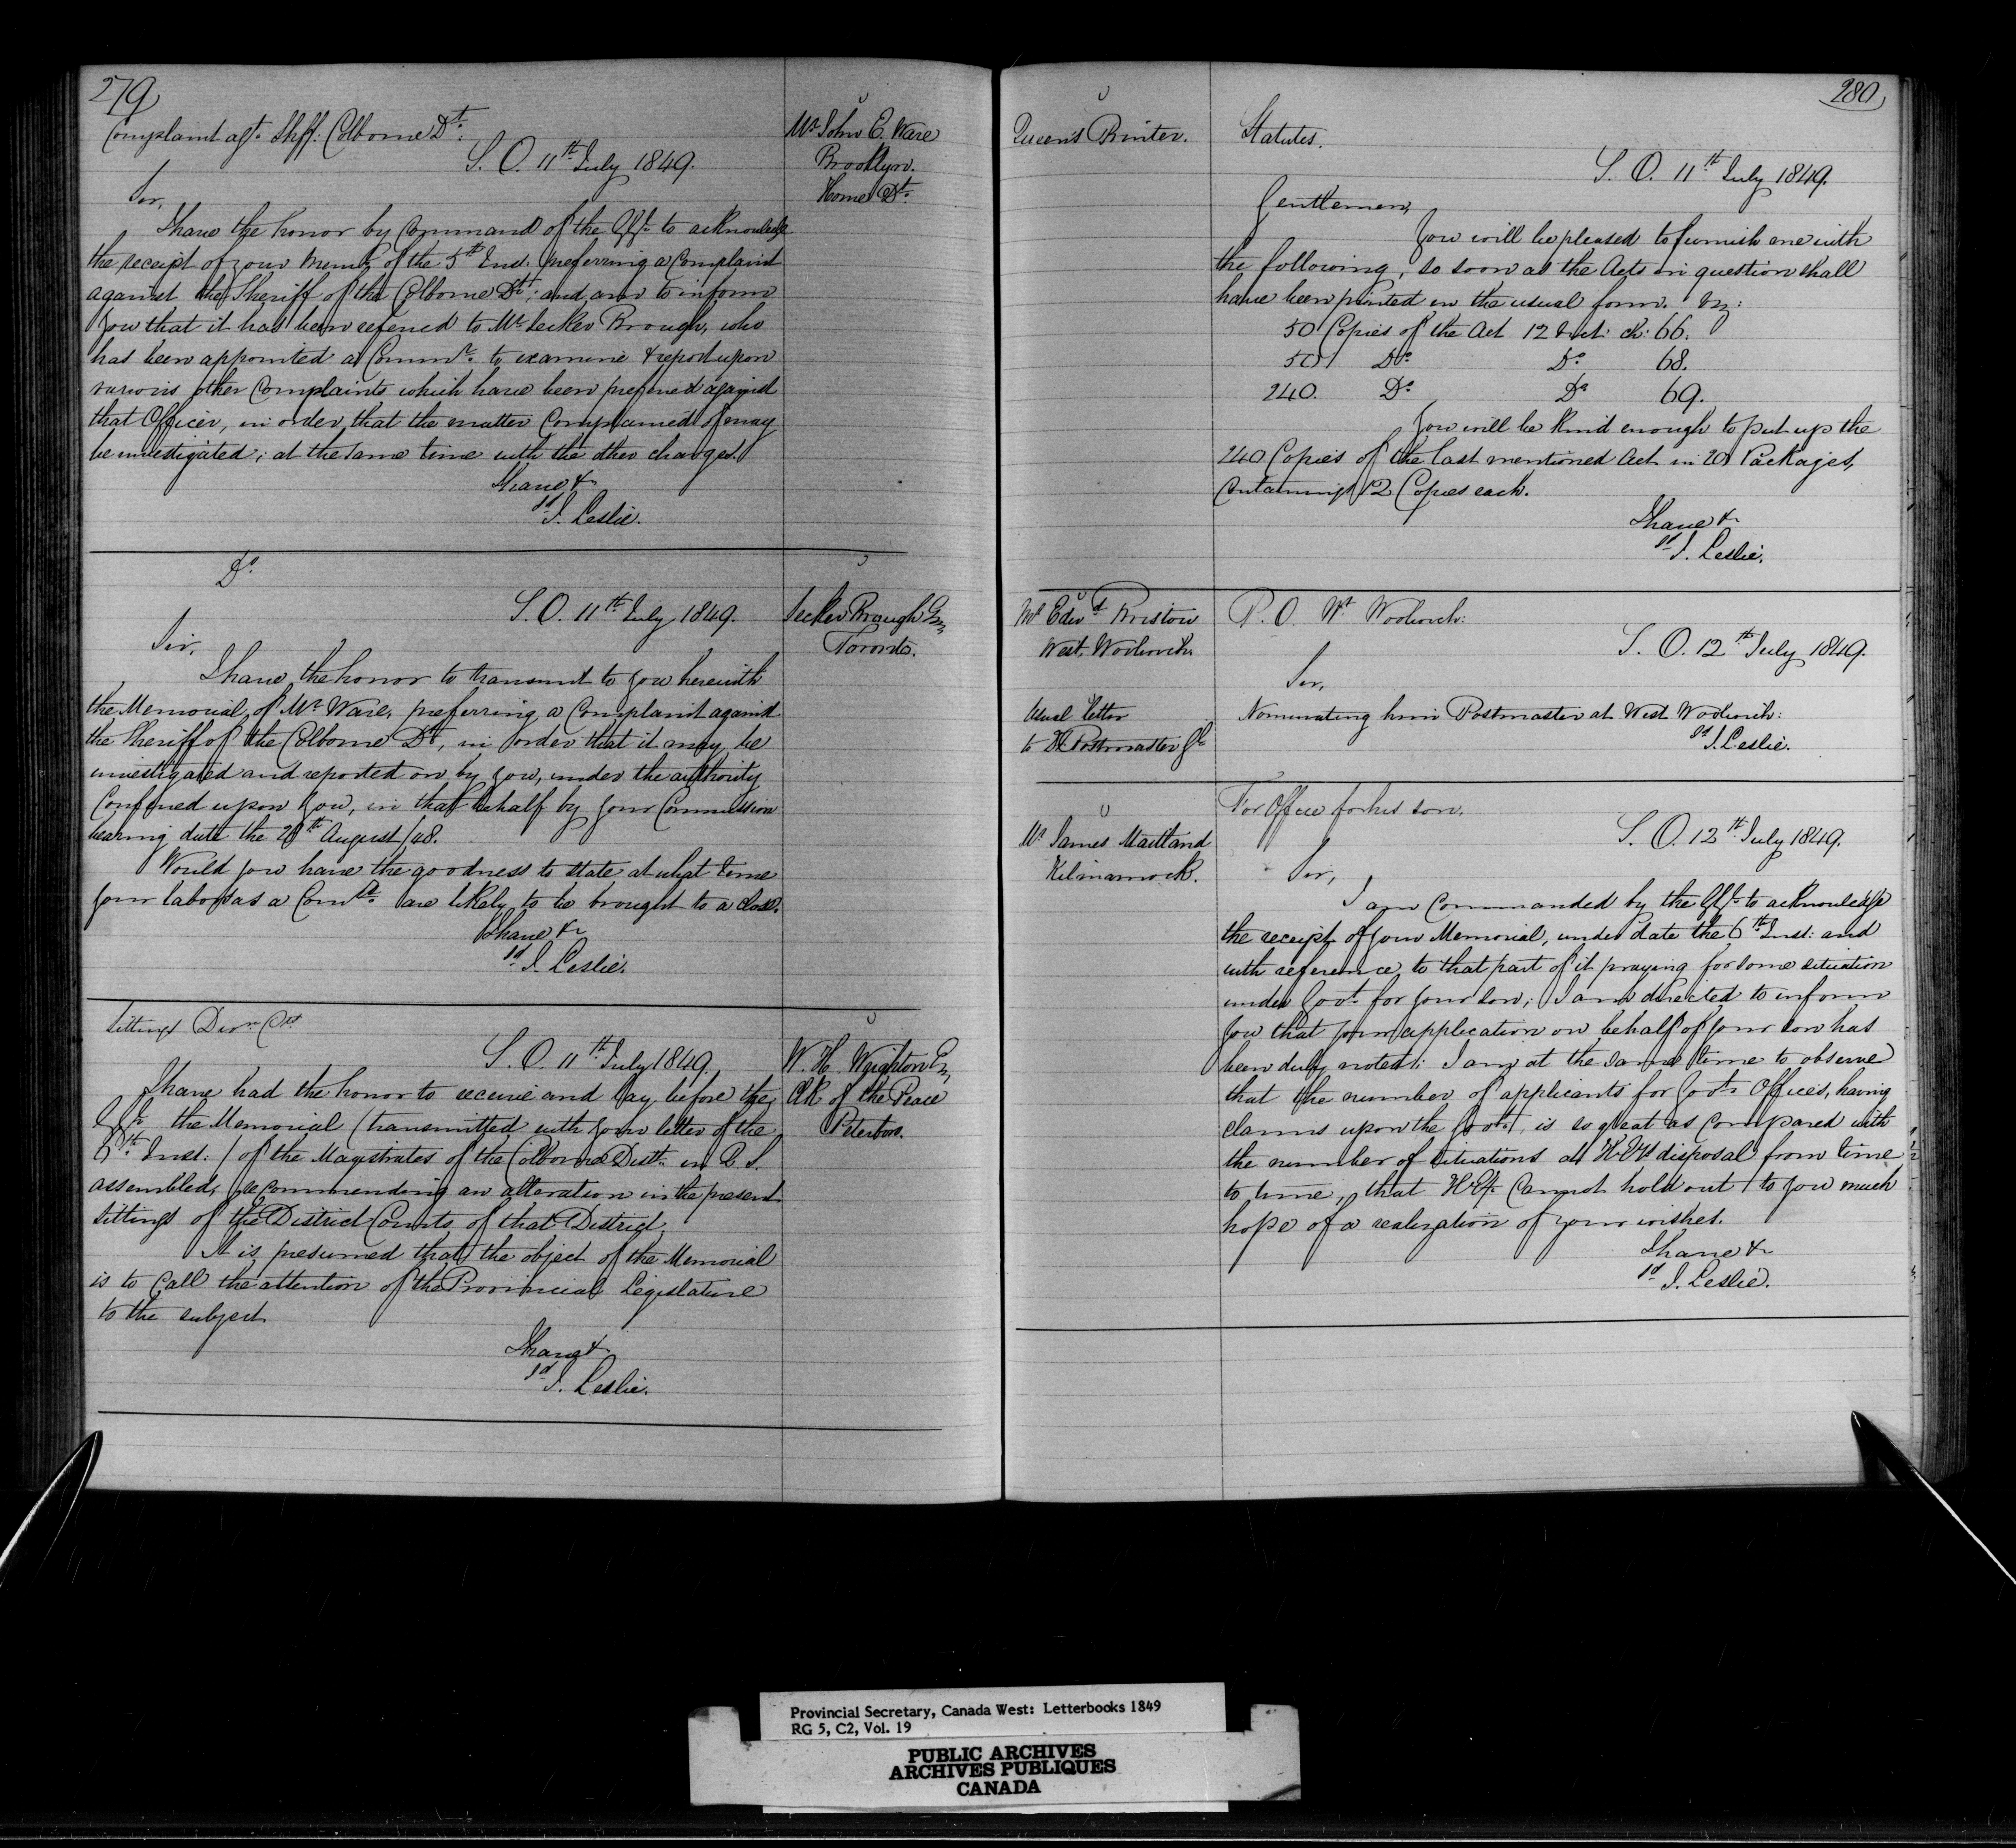 279
Complaint agt. Shff: Colborne Dt:
Mr John C. Ware
Brooklyn.
Home Dt.
S. O. 11th July 1849.
Sir,
I have the honor by Command of the G.G. to acknowledge
the receipt of your Meml. of the 5th Inst: preferring a Complaint
against the Sheriff of the Colborne Dt; and am to inform
you that it has been referred to Mr Secker Brough, who
has been appointed a Commr. to examine & report upon
various other Complaints which have been preferred against
that Officer, in order that the matter Complained of may
be investigated; at the same time with the other charges.
I have &
sd J. Leslie.
Do
S. O. 11th July 1849.
Secker Brough Esq,
Toronto.
Sir,
I have the honor to transmit to you herewith
the Memorial of Mr Ware, preferring a Complaint against
the Sheriff of the Colborne Dt, in order that it may be
investigated and reported on by you, under the authority
Conferred upon you, in that behalf by your Commission
bearing date the August /48.
Would you have the goodness to state at what time
your labors as a Comr. are likely to be brought to a close.
I have &
sd J. Leslie.
Sittings Divn Cts
S. O. 11th July 1849.
W. H. Wrighton Esq,
Clk of the Peace
Peterboro.
I have had the honor to receive and lay before the
G.G. the Memorial (transmitted with your letter of the
6th Inst:) of the Magistrates of the Colborne Distt. in Q. S.
assembled, recommending an alteration in the present
sittings of the District Courts of that District.
It is presumed that the object of the Memorial
is to Call the attention of the Provincial Legislature
to the subject.
I have &
sd J. Leslie.
280
Queen's Printer.
Statutes.
S. O. 11th July 1849.
Gentlemen,
You will be pleased to furnish me with
the following, so soon as the Acts in question shall
have been printed in the usual form. Viz:
50 Copies of the Act 12 Vict: ch: 66.
50 Do Do 68.
240. Do Do 69.
You will be kind enough to put up the
240 Copies of the last mentioned Act in 20 Packages,
Containing 12 Copies each.
I have &
sd J. Leslie.
Mr Edwd Bristow
West Woolwich.
P. O. Wt Woolwich:
S. O. 12th July 1849.
Sir,
Usual letter
to D Postmaster Gl
Nominating him Postmaster at West Woolwich:
sd J. Leslie.
Mr James Maitland
Kilmarnock.
For Office for his son.
S. O. 12th July 1849.
Sir,
I am Commanded by the G.G. to acknowledge
the receipt of your Memorial, under date the 6th Inst: and
with reference to that part of it praying for some situation
under Govt. for your son; I am directed to inform
you that your application on behalf of your son has
been duly noted; I am at the same time to observe
that the number of applicants for Govt. Offices, having
claims upon the Govt., is so great as Compared with
the number of situations at H.Ey's disposal from time
to time, that H.Ey. Cannot hold out to you much
hope of a realization of your wishes.
I have &
sd J. Leslie.
Provincial Secretary, Canada West: Letterbooks 1849
RG 5, C2, Vol. 19
PUBLIC ARCHIVES
ARCHIVES PUBLIQUES
CANADA